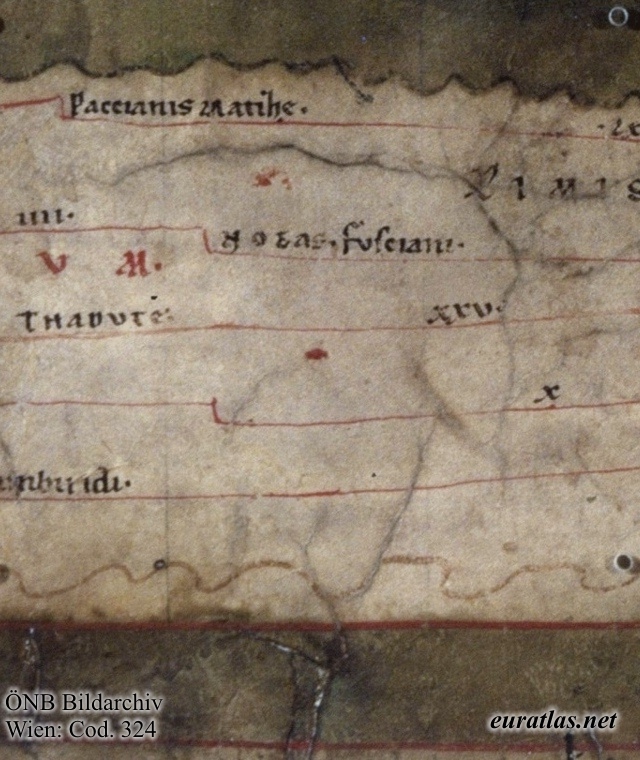 Paccianis Matihe.
R I M I S
IIII.
Nobas. fusciani.
V M.
THADUTE:
XXV.
X
ÖNB Bildarchiv
Wien: Cod. 324
euratlas.net